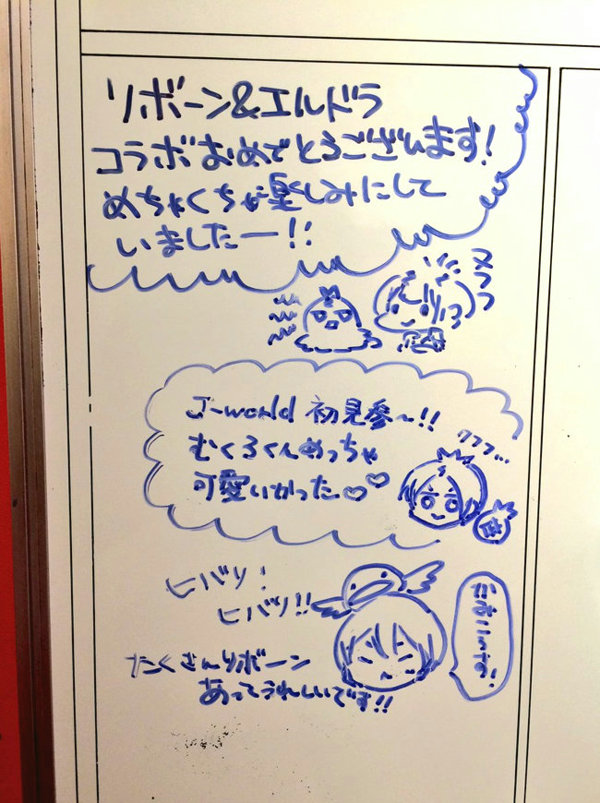 リボーン&エルドラ
コラボおめでとうございます!
めちゃくちゃ楽しみにして
いましたー!!
ヌフフ
J-world 初見参〜!!
むくろくんめっちゃ
可愛いかった♡♡
クフフ…
ヒバリ!
ヒバリ!!
たくさんリボーン
あってうれしいです!!